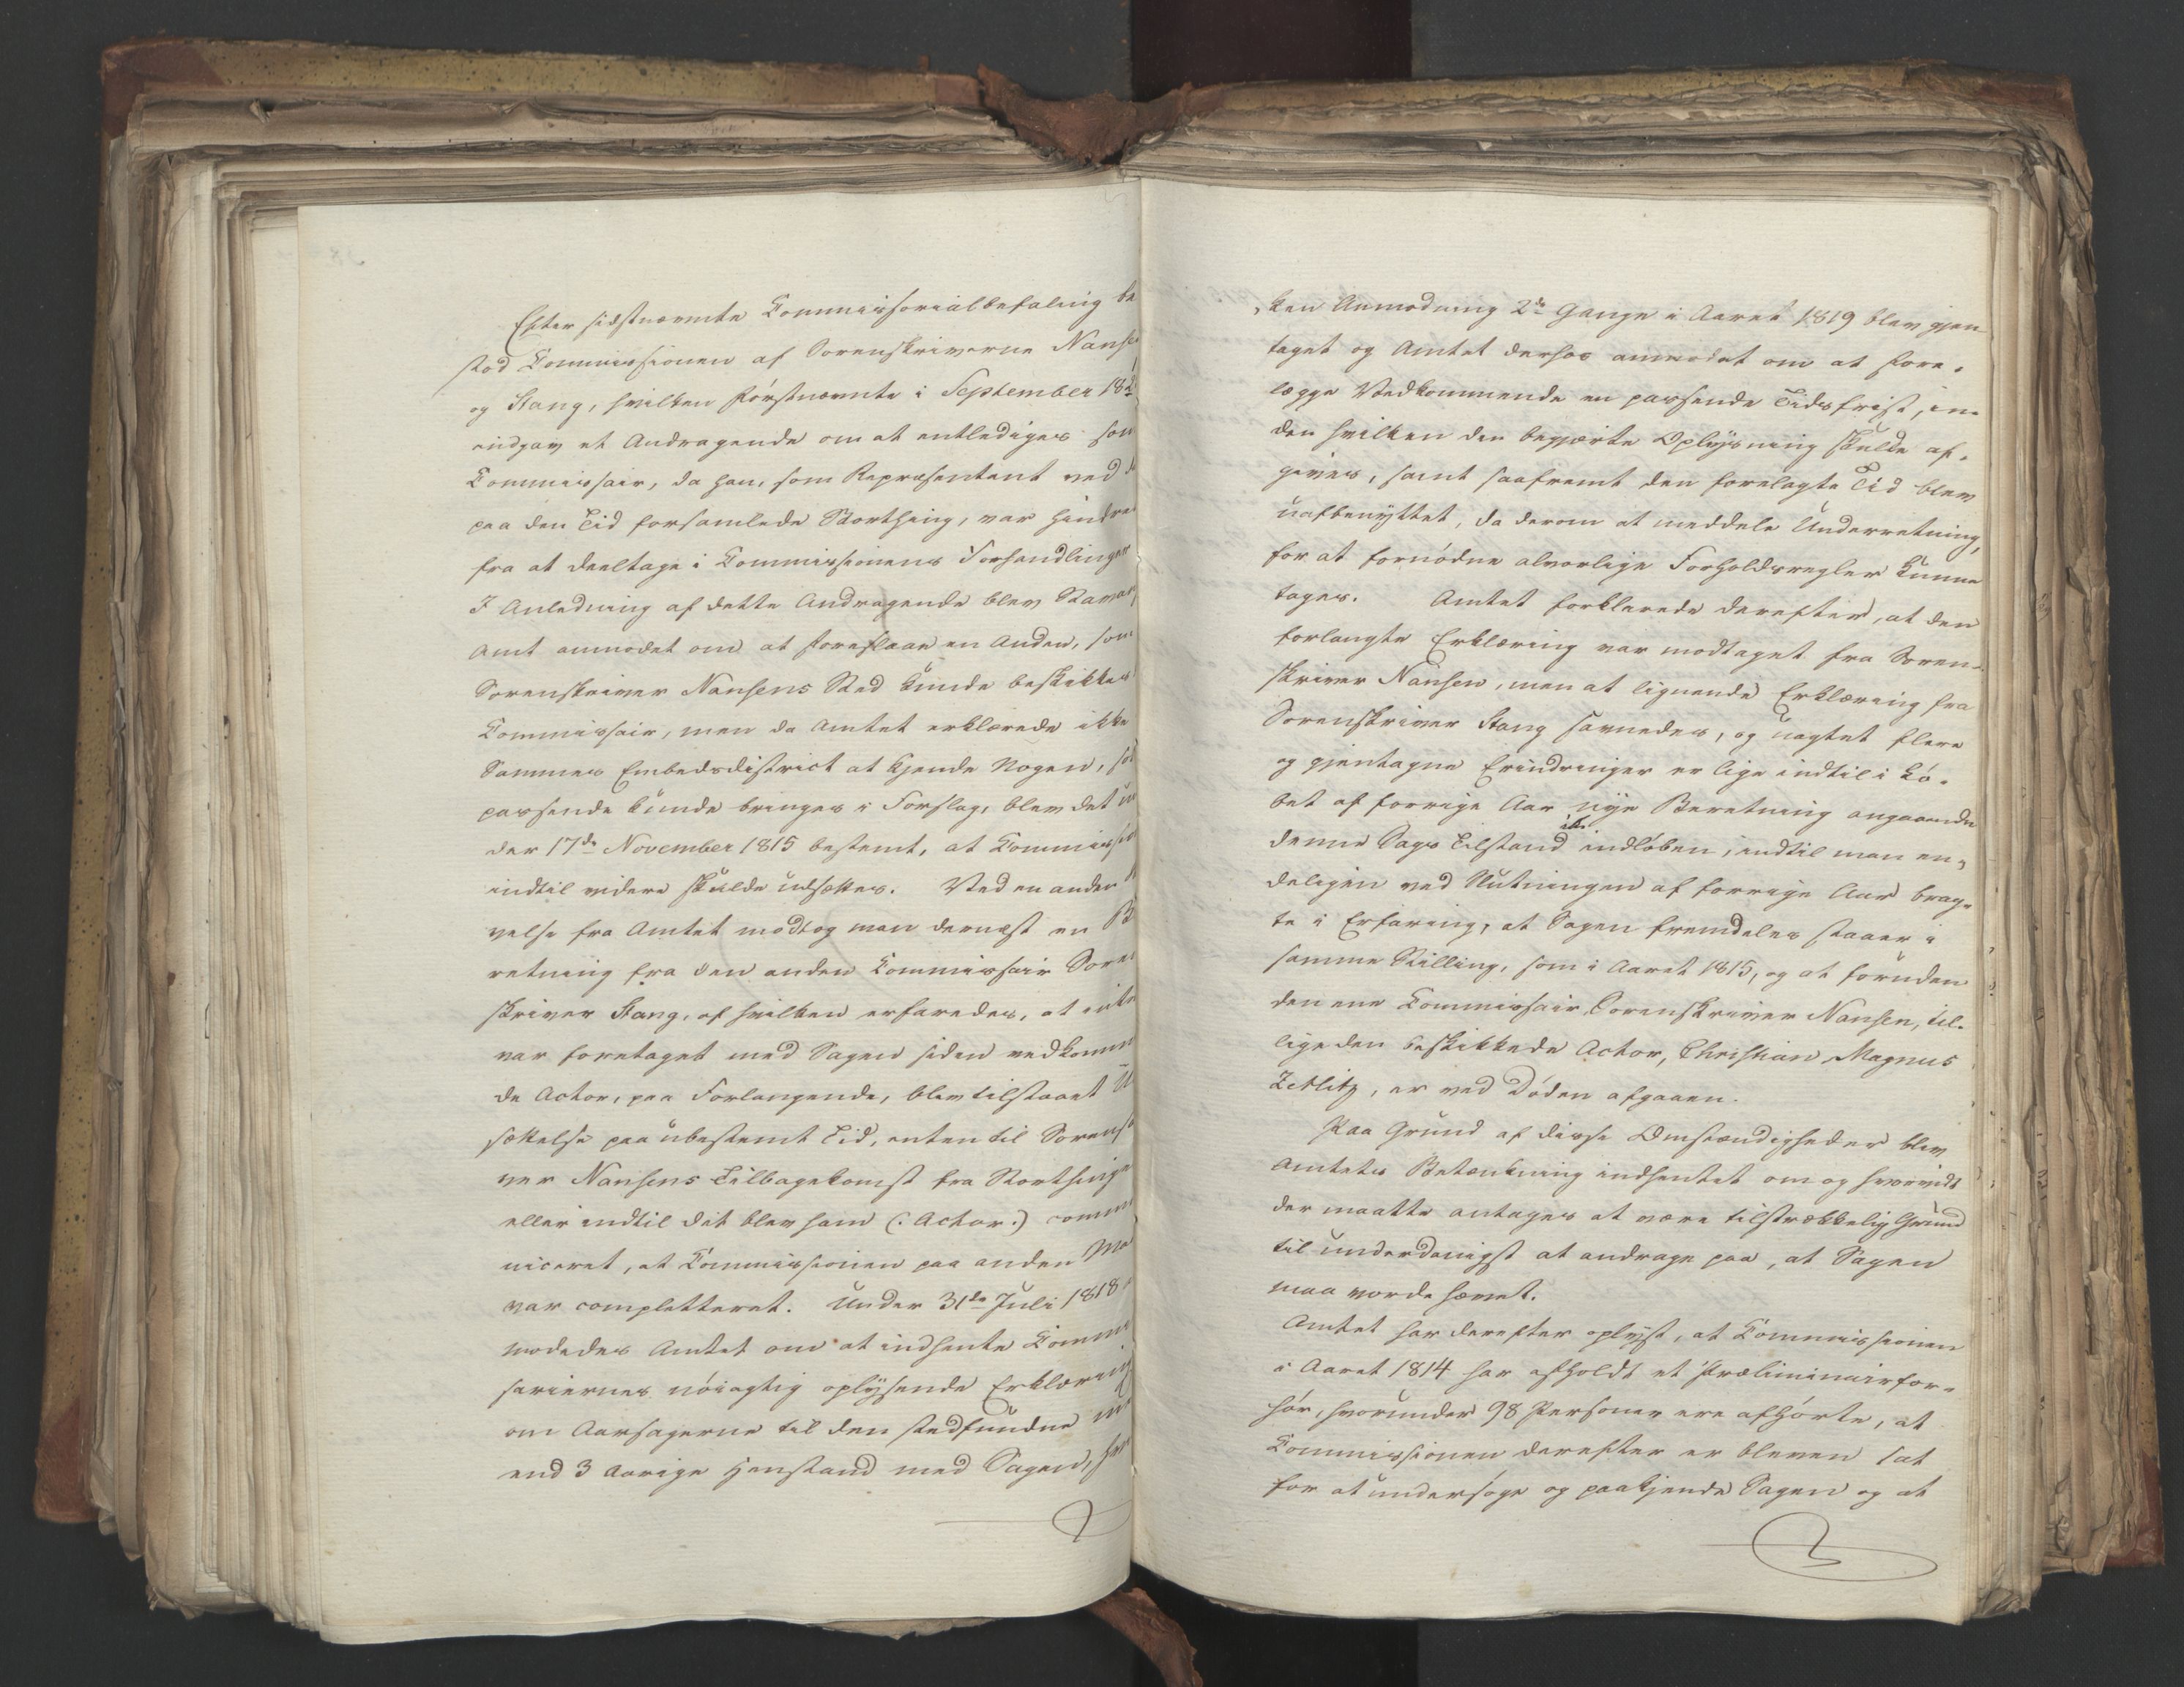 Efter sidstnævnte Commissorialbefaling be
stod Commissionen af Sorenskriverne Nanse
og Stang, hvilken förstnævnte i September 18
indgav et Andragende om at entlediges som
Commissair, da han, som Repræsentant ved d
paa den Tid forsamlede Storthing, var hindre
fra at deeltage i Commissionens Forhandlinger
I Anledning af dette Andragende blev Stavan
Amt anmodet om at foreslaae en Anden, som
Sorenskriver Nansens Sted kunde beskikkes
Commissair, men da Amtet erklærede ikke
Sammes Embedsdistrict at kjende Nogen, so
passende kunde bringes i Forslag, blev det un
der 17de November 1815 bestemt, at Commission
indtil videre skulde udsættes. Ved en anden
velse fra Amtet modtog man dernæst en B
retning fra den anden Commissair Soren
skriver Stang, af hvilken erfaredes, at inte
var foretaget med Sagen siden vedkommen
de Actor, paa Forlangende, blev tilstaaet U
sættelse paa ubestemt Tid, enten til Sorenskri
ver Nansens Tilbagekomst fra Storthinge
eller indtil det blev ham (: Actor :) commu
niceret, at Commissionen paa anden Ma
var completteret. Under 31de Juli 1818 a
modedes Amtet om at indhente Commis
sariernes nöiagtig oplysende Erklæring
om Aarsagerne til den stedfundne m
end 3 Aarige Henstand med Sagen, hvi
ken Anmodning 2de Gange i Aaret 1819 blev gjen
taget og Amtet derhos anmodet om at fore-
lægge Vedkommende en passende Tidsfrist, in-
den hvilken den begjærte Oplysning skulde af-
gives, samt saafremt den forelagte Tid blev
uafbenyttet, da derom at meddele Underretning,
for at fornödne alvorlige Forholdsregler kunne
tages. Amtet forklarede derefter, at den
forlangte Erklæring var modtaget fra Soren-
skriver Nansen, men at lignende Erklæring fra
Sorenskriver Stang savnedes, og uagtet flere
og gjentagne Erindringer er lige indtil i Lö-
bet af forrige Aar nye Beretning angaaende
denne Sags Tilstand ikke indlöben, indtil man en-
deligen ved Slutningen af forrige Aar brag-
te i Erfaring, at Sagen fremdeles staaer i
samme Stilling, som i Aaret 1815, og at foruden
den ene Commissair, Sorenskriver Nansen, til-
lige den beskikkede Actor, Christian Magnus
Zetlitz, er ved Döden afgaaen.
Paa Grund af disse Omstændigheder blev
Amtets Betænkning indhentet om og hvorvidt
der maatte antages at være tilstrækkelig Grund
til underdanigst at andrage paa, at Sagen
maa vorde hævet.
Amtet har derefter oplyst, at Commissionen
i Aaret 1814 har afholdt et Præliminairfor-
hör, hvorunder 98 Personer ere afhörte, at
Commissionen derefter er bleven sat
for at undersöge og paakjende Sagen og at